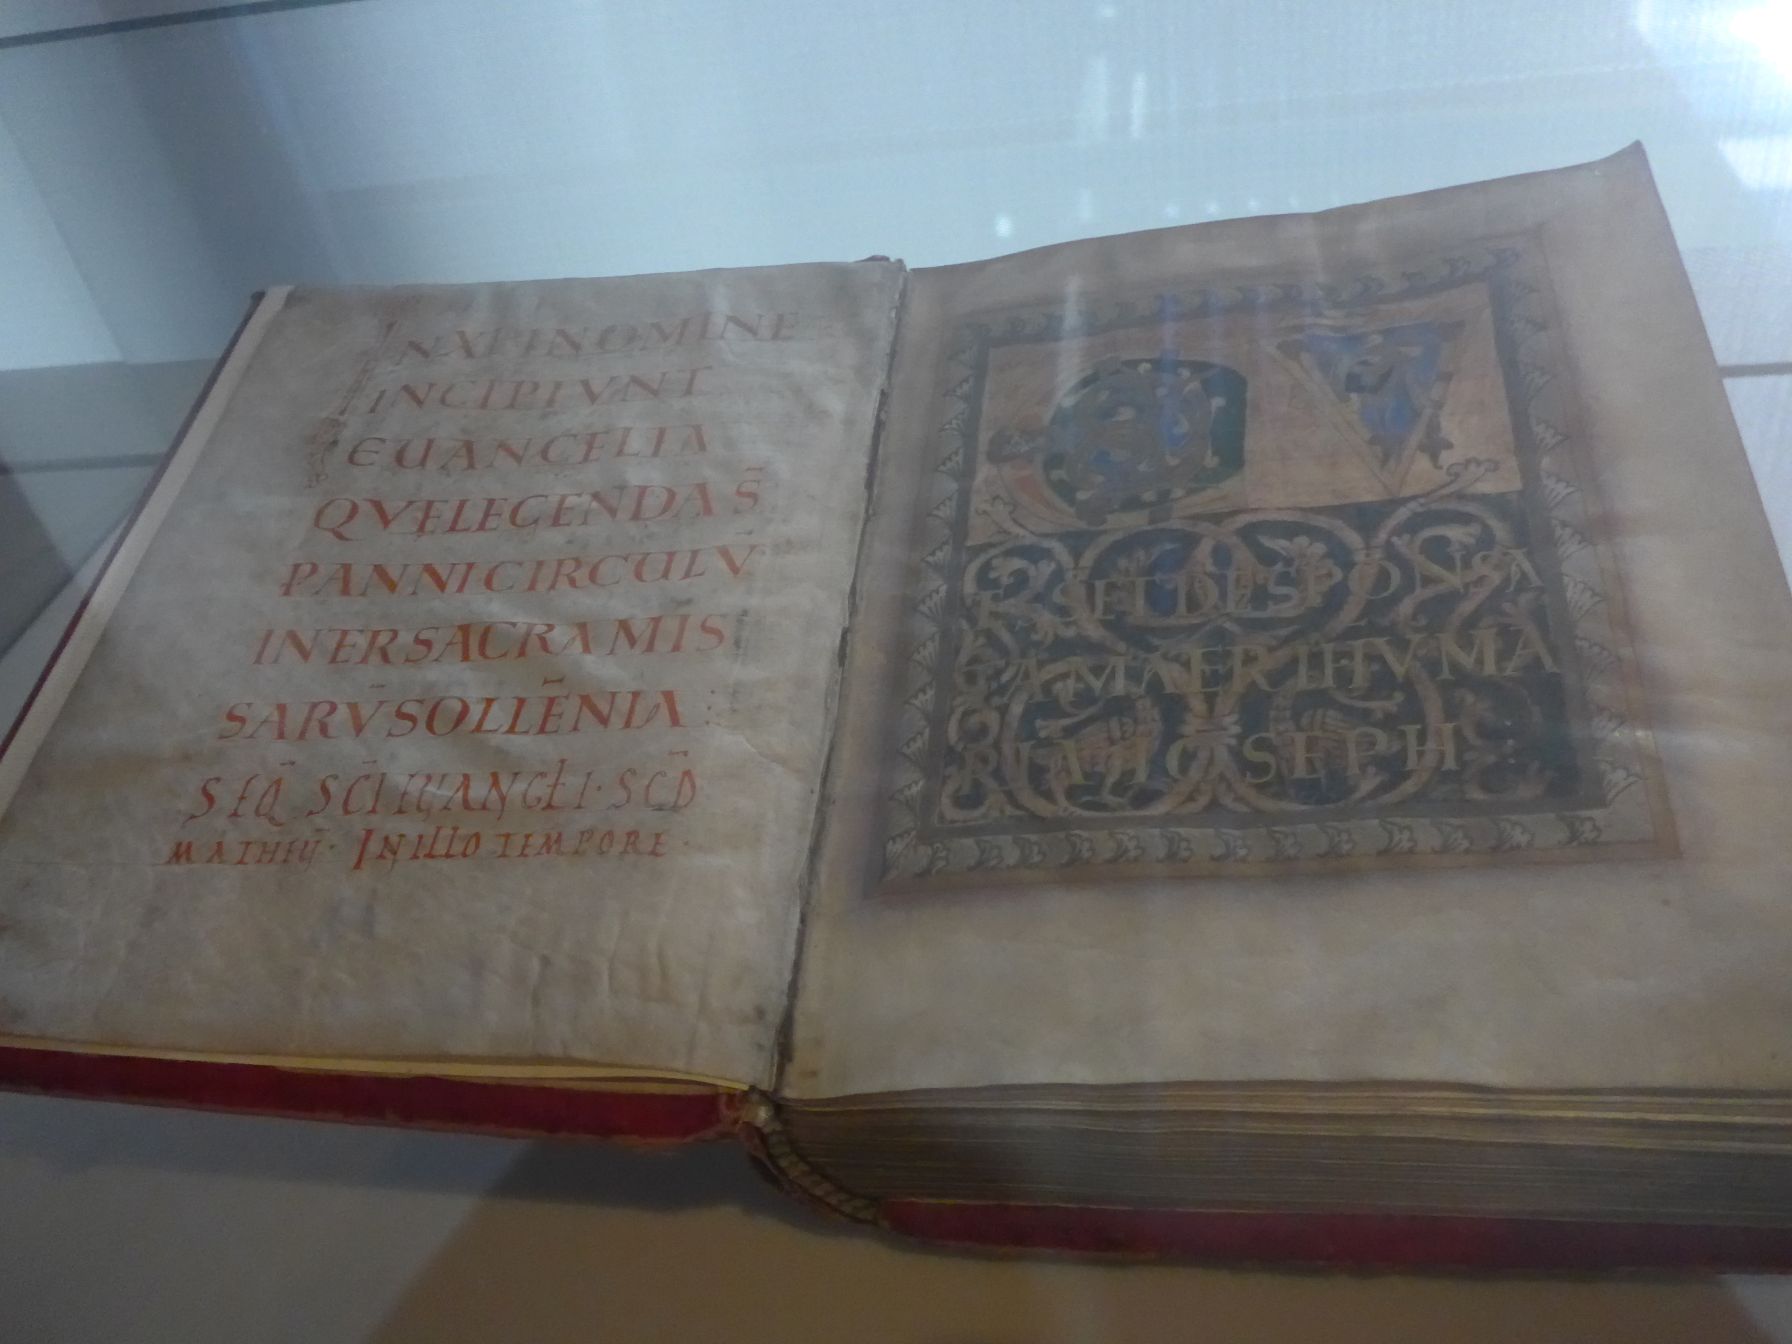 IN XPI NOMINE
INCIPIVNT
EUANGELIA
QVĘ LEGENDA S̄
P ANNI CIRCULV̄
INTER SACRA MIS
SARV̄ SOLLĒNIA
SEQ̄ SC̄I EVANGEŁI · SCD̄
MATHEŪ · IN ILLO TEMPORE ·
QV
E SET DESPONSA
TA MATER IHV MA
RIA IOSEPH